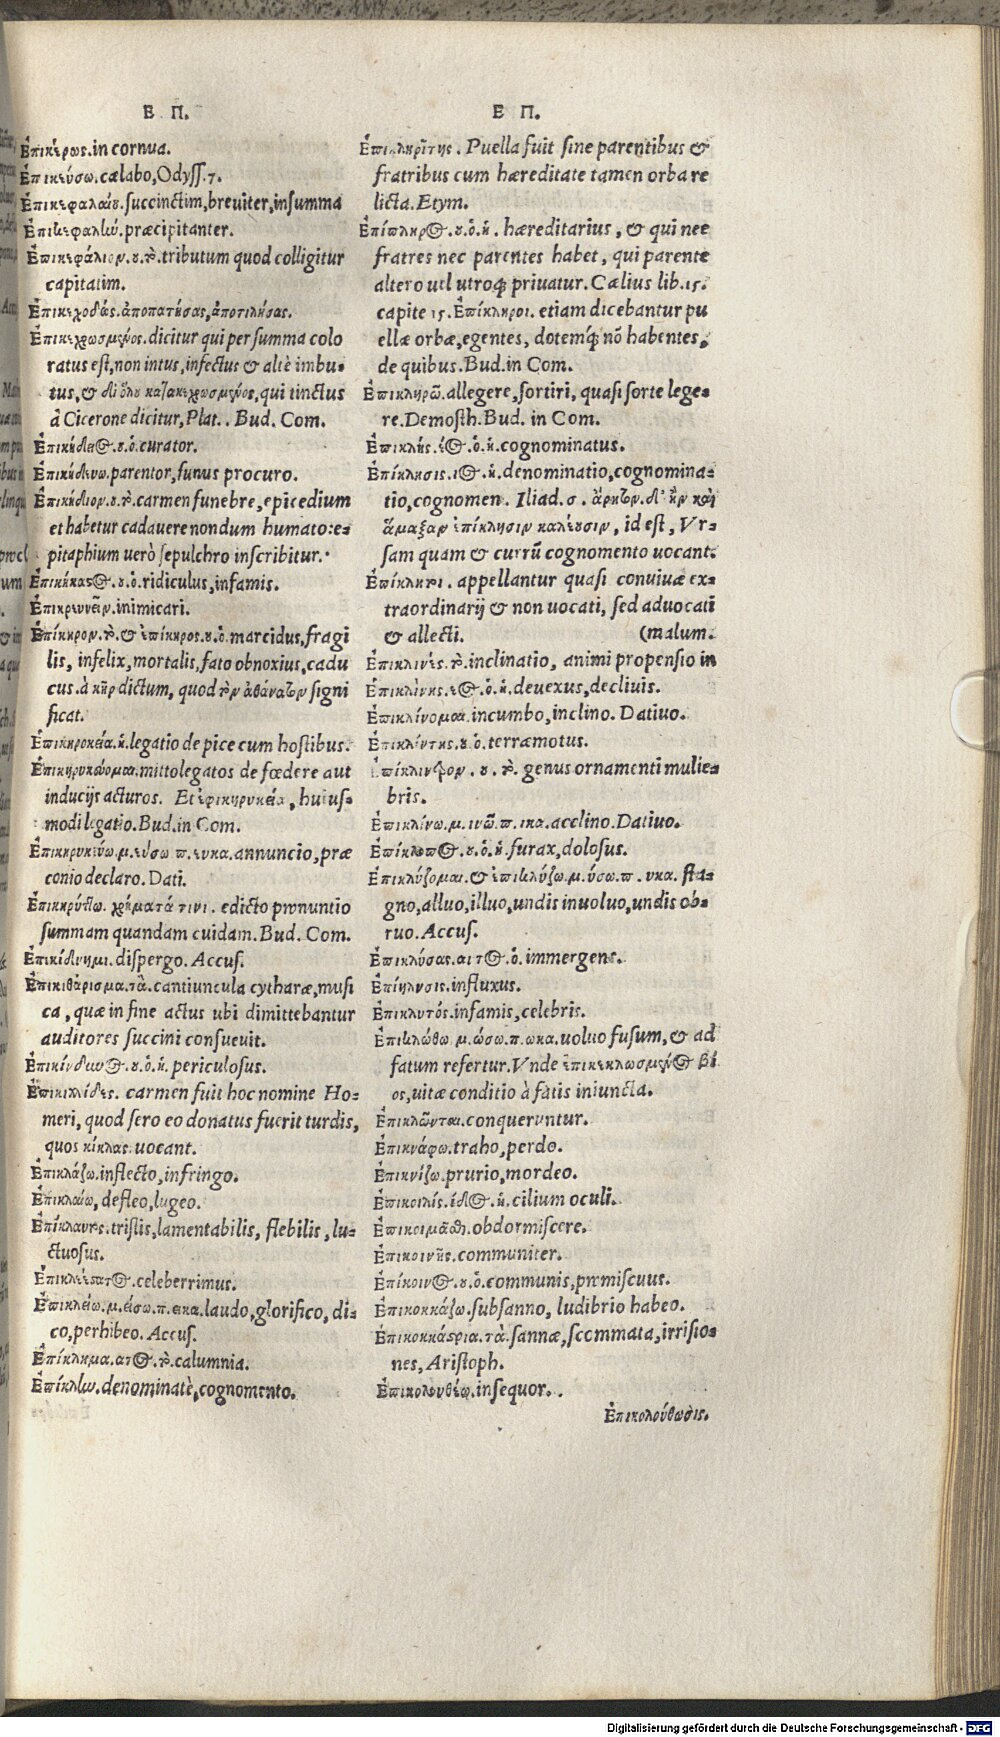 Ε Π.
Ἐπικέρως.in cornua.
Ἐπικεύσω.cælabo,Odyss.7.
Ἐπικεφαλαίου.succinctim,breuiter,in summa
Ἐπικεφαλὴν.præcipitanter.
Ἐπικεφάλιον.ου.τὸ.tributum quod colligitur
capitatim.
Ἐπικεχοδὼς.ἀποπατήσας,ἀποτιλήσας.
Ἐπικεχρωσμένος.dicitur qui per summa colo
ratus est,non intus,infectus & altè imbu-
tus,& δι' ὅλου κατακεχρωσμένος,qui tinctus
à Cicerone dicitur,Plat.. Bud. Com.
Ἐπικήδειος.ου.ὁ.curator.
Ἐπικηδεύω.parentor,funus procuro.
Ἐπικήδιον.ου.τὸ.carmen funebre,epicedium
et habetur cadauere nondum humato:e-
pitaphium uerò sepulchro inscribitur.
Ἐπικήκαστος.ου.ὁ.ridiculus,infamis.
inimicari.
Ἐπίκηρον.τὸ.& ἐπίκηρος.ου.ὁ.marcidus,fragi
lis, infelix,mortalis,fato obnoxius,cadu
cus.à κὴρ dictum, quod τὸν ἀθάνατον signi
ficat.
Ἐπικηροκεία.ἡ.legatio de pice cum hostibus.
Ἐπικηρυκεύομαι.mitto legatos de fœdere aut
inducijs acturos. Et ἐφικηρυκεία, huius-
modi legatio.Bud.in Com.
Ἐπικηρυκεύω.μ.εύσω π.ευκα.annuncio,præ
conio declaro.Dati.
Ἐπικηρύττω. χρήματά τινι. edicto pronuntio
summam quandam cuidam.Bud. Com.
Ἐπικίδνημι.dispergo. Accus.
Ἐπικιθάρισμα.τὰ.cantiuncula cytharæ,musi
ca, quæ in fine actus ubi dimittebantur
auditores succini consueuit.
Ἐπικίνδυνος.ου.ὁ.ἡ.periculosus.
Ἐπικιχλίδες. carmen fuit hoc nomine Ho-
meri, quod sero eo donatus fuerit turdis,
quos κίκλας uocant.
Ἐπικλάζω.inflecto,infringo.
Ἐπικλαίω, defleo,lugeo.
Ἐπίκλαυτος.tristis,lamentabilis, flebilis,lu-
ctuosus.
Ἐπικλεέστατος.celeberrimus.
Ἐπικλείω.μ.είσω.π.εικα.laudo,glorifico,di-
co,perhibeo. Accus.
Ἐπίκλημα.ατος.τὸ.calumnia.
Ἐπίκλην.denominatè,cognomento.
Ε Π.
Ἐπικληρῖτης. Puella fuit sine parentibus &
fratribus cum hæreditate tamen orba re
licta. Etym.
Ἐπίκληρος.ου.ὁ.ἡ. hæreditarius, & qui nec
fratres nec parentes habet, qui parente
altero uel utroq; priuatur. Cælius lib.15.
capite 15. Ἐπίκληροι. etiam dicebantur pu
ellæ orbæ,egentes, dotemq; nō habentes,
de quibus.Bud.in Com.
Ἐπικληρῶ.allegere,sortiri, quasi sorte lege-
re.Demosth.Bud. in Com.
Ἐπικλής.έος.ὁ.ἡ.cognominatus.
Ἐπίκλησις.ιος.ἡ.denominatio,cognomina-
tio,cognomen. Iliad.σ. ἄρκτον.δ' ἣν καὶ
ἅμαξαν ἐπίκλησιν καλέουσιν, id est, Vr-
sam quam & currū cognomento uocant.
Ἐπίκλητοι. appellantur quasi conuiuæ ex-
traordinarij & non uocati, sed aduocati
& allecti. (malum.
Ἐπικλινὲς.τὸ.inclinatio, animi propensio in
Ἐπικλινὴς.εος.ὁ.ἡ.deuexus,decliuis.
Ἐπικλίνομαι.incumbo,inclino. Datiuo.
Ἐπικλίντης.ου.ὁ.terræmotus.
Ἐπίκλιντρον.ου.τὸ.genus ornamenti mulie-
bris.
Ἐπικλίνω.μ.ινῶ.π.ικα.acclino.Datiuo.
Ἐπίκλοπος.ου.ὁ.ἡ.furax,dolosus.
Ἐπικλύζομαι.& ἐπικλύζω.μ.ύσω.π.υκα.sta-
gno,alluo,illuo,undis inuoluo,undis ob-
ruo. Accus.
Ἐπικλύσας.αντος.ὁ.immergens.
Ἐπίκλυσις.influxus.
Ἐπικλυτός.infamis,celebris.
Ἐπικλώθω.μ.ώσω.π.ωκα.uoluo fusum,& ad
fatum refertur. Vnde ἐπικεκλωσμένος βί
ος,uitæ conditio à fatis iniuncta.
Ἐπικλῶνται.conqueruntur.
Ἐπικνάφω.traho,perdo.
Ἐπικνίζω.prurio,mordeo.
Ἐπικοιλὶς.ίδος.ἡ.cilium oculi.
Ἐπικοιμᾶσθαι.obdormiscere.
Ἐπικοινῆς.communiter.
Ἐπίκοινος.ου.ὁ.communis,promiscuus.
Ἐπικοκκάζω.subsanno, ludibrio habeo.
Ἐπικοκκάστρια.τὰ.sannæ,scommata,irrisio-
nes, Aristoph.
Ἐπικολουθέω.insequor..
Ἐπικολούθωσις.
Digitalisierung gefördert durch die Deutsche Forschungsgemeinschaft - DFG